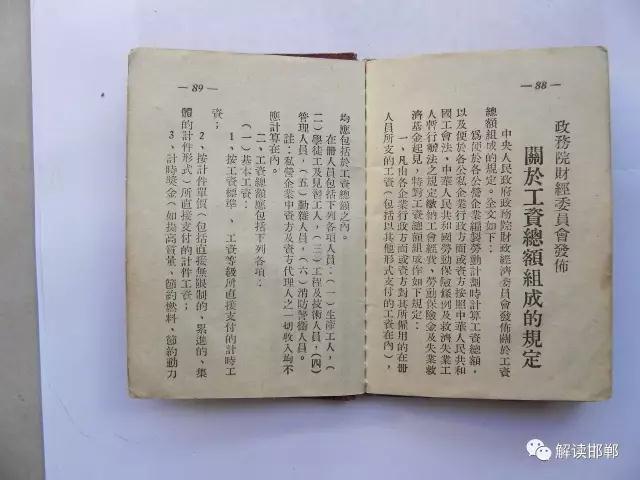 — 88 —
政務院財經委員會發佈
關於工資總額組成的規定
中央人民政府政務院財政經濟委員會發佈關於工資
總額組成的規定。全文如下：
爲便於各公營企業編製勞動計劃時計算工資總額，
以及便於各公私企業行政方面或資方按照中華人民共和
國工會法，中華人民共和國勞動保險條例及救濟失業工
人暫行辦法之規定繳納工會經費、勞動保險金及失業救
濟基金起見，特對工資總額組成作如下規定：
一、凡由各企業行政方面或資方對其所僱用的在冊
人員所支的工資（包括以其他形式支付的工資在內），
— 89 —
均應包括於工資總額之內。
在冊人員包括下列各項人員：（一）生產工人，（
二）學徒工及見習工人，（三）工程及技術人員，（四）
管理人員，（五）勤雜人員，（六）消防警衛人員。
註：私營企業中資方及資方代理人之一切收入均不
應計算在內。
二、工資總額應包括下列各項：
（一）基本工資：
1、按工資標準、工資等級所直接支付的計時工
資；
2、按計件單價（包括直接無限制的，累進的，集
體的計件形式）所直接支付的計件工資；
3、計時獎金（如提高質量、節約燃料、節約動力
解读邯郸